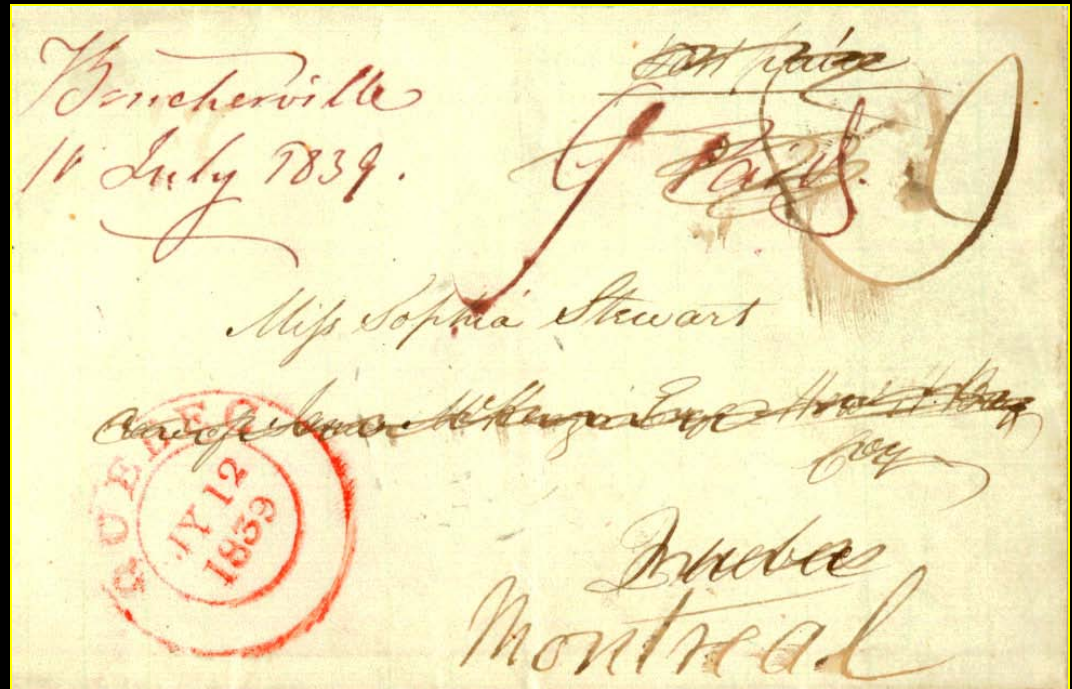 Boucherville
11 July 1839.
Post paid
9 Paid. 9
Miss Sophia Stewart
care of James McKenzie Esqr Hon. H. Bay
Coy
Quebec
Montreal
QUEBEC
JY 12
1839